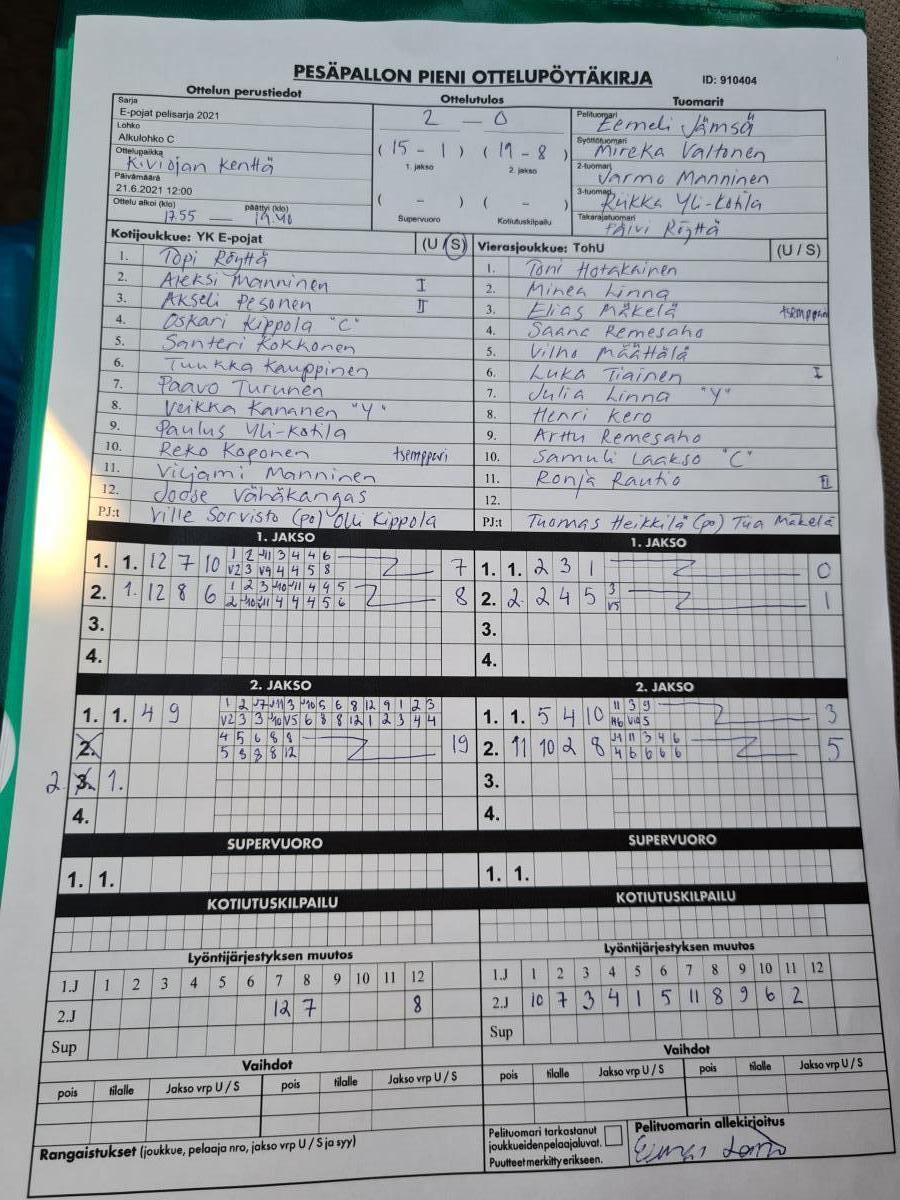 PESÄPALLON PIENI OTTELUPÖYTÄKIRJA ID: 910404
Ottelun perustiedot Ottelutulos Tuomarit
Sarja
E-pojat pelisarja 2021
Lohko
Alkulohko C
Ottelupaikka
Kiviojan kenttä
Päivämäärä
21.6.2021 12:00
Ottelu alkoi (klo) päättyi (klo)
17.55 — 19.40
2 — 0
( 15 - 1 ) ( 19 - 8 )
1. jakso 2. jakso
( - ) ( - )
Supervuoro Kotiutuskilpailu
Pelituomari
Eemeli Jämsä
Syöttötuomari
Mireka Valtonen
2-tuomari
Jarmo Manninen
3-tuomari
Riikka Yli-Kotila
Takarajatuomari
Päivi Röyttä
Kotijoukkue: YK E-pojat (U / S)
1. Topi Röyttä
2. Aleksi Manninen I
3. Akseli Pesonen II
4. Oskari Kippola "C"
5. Santeri Kokkonen
6. Tuukka Kauppinen
7. Paavo Turunen
8. Veikka Kananen "Y"
9. Paulus Yli-Kotila
10. Reko Koponen tsemppari
11. Viljami Manninen
12. Joose Vähäkangas
PJ:t Ville Sorvisto (po) Olli Kippola
Vierasjoukkue: TohU (U / S)
1. Toni Hotakainen
2. Minea Linna
3. Elias Mäkelä tsemppari
4. Saana Remesaho
5. Vilho Määttälä
6. Luka Tiainen I
7. Julia Linna "Y"
8. Henri Kero
9. Arttu Remesaho
10. Samuli Laakso "C"
11. Ronja Rautio II
12.
PJ:t Tuomas Heikkilä (po) Tua Mäkelä
1. JAKSO
1. 1. 12 7 10 7
2. 1. 12 8 6 8
3.
4.
1. JAKSO
1. 1. 2 3 1 0
2. 2. 2 4 5 3 1
V5
3.
4.
2. JAKSO
1. 1. 4 9
2. 4 5 6 8 8 19
5 8 8 8 12
2. 3. 1.
4.
2. JAKSO
1. 1. 5 4 10 11 3 9 3
2. 11 10 2 8 5
4 6 6 6 6
3.
4.
SUPERVUORO
1. 1.
SUPERVUORO
1. 1.
KOTIUTUSKILPAILU
KOTIUTUSKILPAILU
Lyöntijärjestyksen muutos
1.J 1 2 3 4 5 6 7 8 9 10 11 12
2.J 12 7 8
Sup
Lyöntijärjestyksen muutos
1.J 1 2 3 4 5 6 7 8 9 10 11 12
2.J 10 7 3 4 1 5 11 8 9 6 2
Sup
Vaihdot
pois tilalle Jakso vrp U / S pois tilalle Jakso vrp U / S
Vaihdot
pois tilalle Jakso vrp U / S pois tilalle Jakso vrp U / S
Rangaistukset (joukkue, pelaaja nro, jakso vrp U / S ja syy)
Pelituomari tarkastanut
joukkueidenpelaajaluvat.
Puutteet merkitty erikseen.
Pelituomarin allekirjoitus